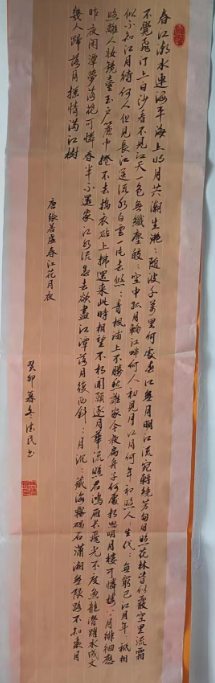 春江潮水連海平海上明月共潮生灩〻隨波千萬里何處春江無月明江流宛轉繞芳甸月照花林皆似霰空里流霜
不覺飛汀上白沙看不見江天一色無纖塵皎〻空中孤月輪江畔何人初見月江月何年初照人〻生代〻無窮已江月年〻祇相
似不知江月待何人但見長江送流水白雲一片去悠〻青楓浦上不勝愁誰家今夜扁舟子何處相思明月樓可憐樓上月徘徊應
照離人妝鏡臺玉戶簾中捲不去搗衣砧上拂還來此時相望不相聞願逐月華流照君鴻雁長飛光不度魚龍潛躍水成文
昨夜閑潭夢落花可憐春半不還家江水流春去欲盡江潭落月復西斜〻月沉〻藏海霧碣石瀟湘無限路不知乘月
幾人歸落月搖情滿江樹
唐張若虛春江花月夜
癸卯 冬 書